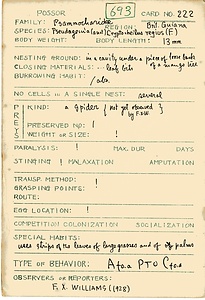 POSSOR 693 CARD NO. 222
FAMILY: Psammocharidae REGION: Brit. Guiana
SPECIES: Pseudagenia (and) Cryptocheilus regius (F)
BODY WEIGHT: BODY LENGTH: 13 mm
NESTING GROUND: in a cavity under a piece of loose bark
CLOSING MATERIAL: ... leaf bits of a mango tree
BURROWING HABIT:
NO. CELLS IN A SINGLE NEST: several
PREY
KIND: a spider (not yet observed by F.X.W.)
PRESERVED NO: 1
WEIGHT OR SIZE: !
PARALYSIS: ! MAX. DUR DAYS
STINGING ! MALAXATION AMPUTATION
TRANSP. METHOD: !
GRASPING POINTS:
ROUTE:
EGG LOCATION: !
COMPETITION COLONIZATION SOCIALIZATION
SPECIAL HABITS:
uses strips of the leaves of large grasses and of the palms
TYPE OF BEHAVIOR:
OBSERVERS OR REPORTERS:
F. X. WILLIAMS (1928)